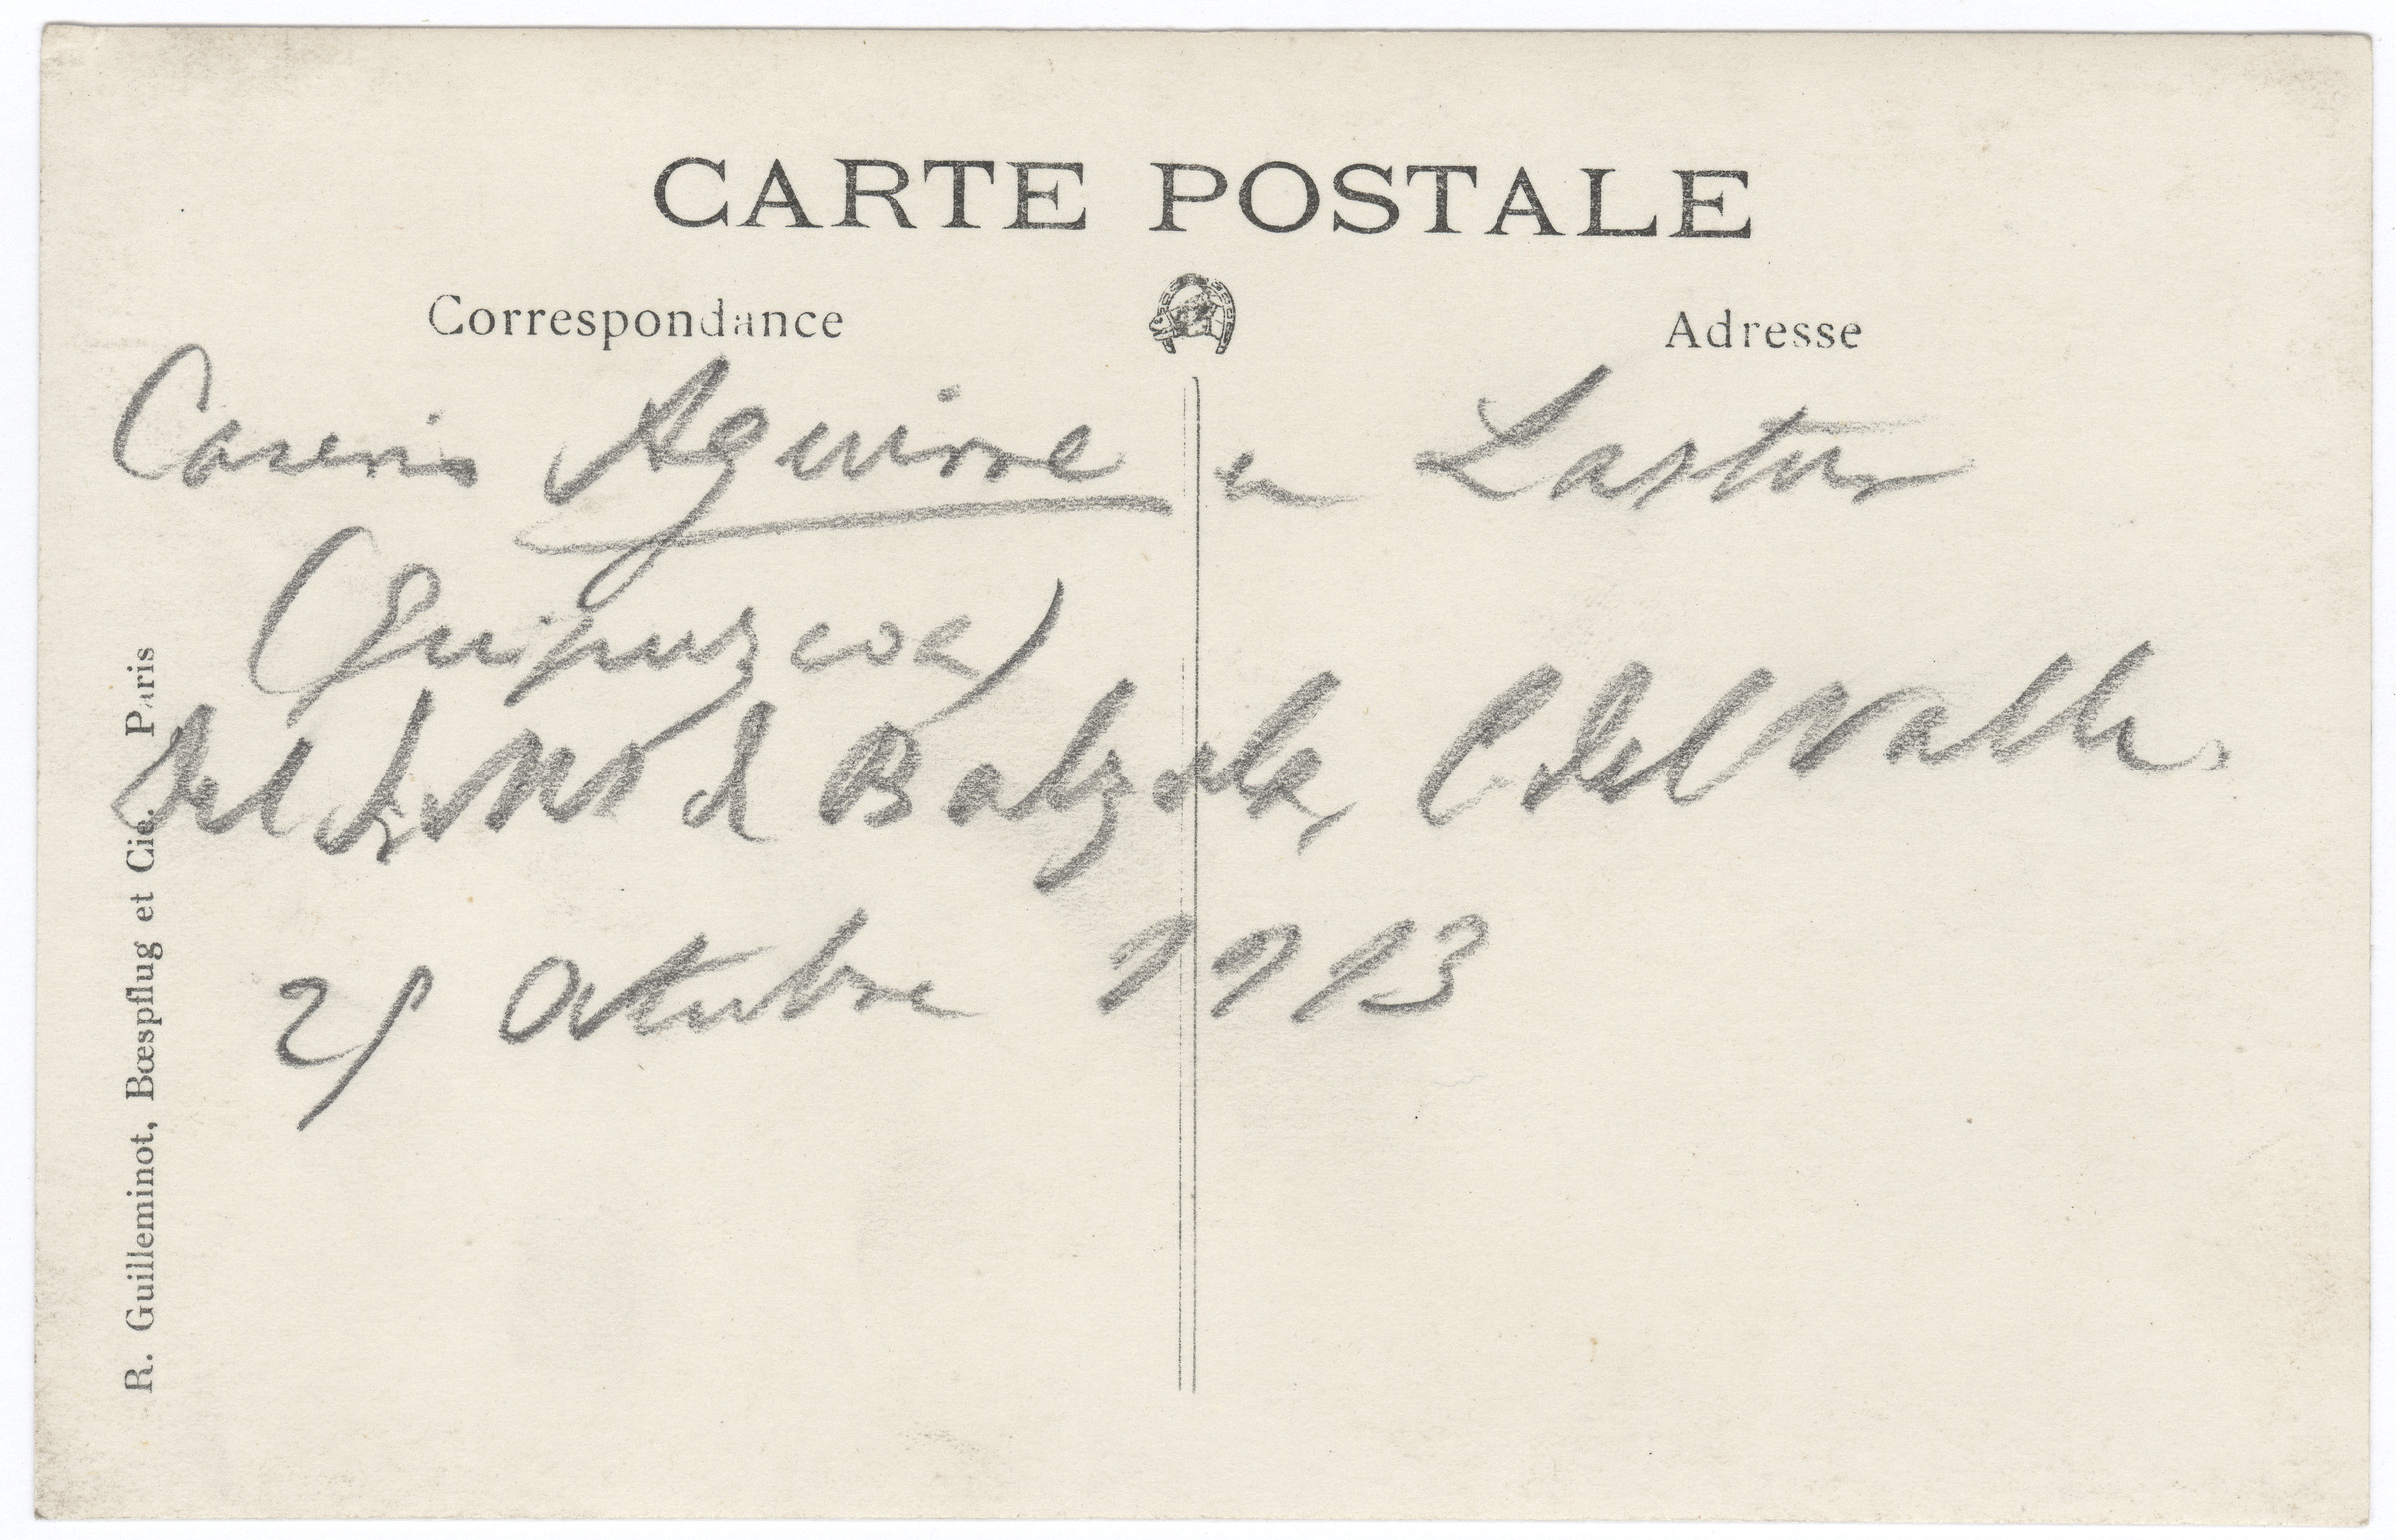 CARTE POSTALE
Correspondance
Adresse
Caserio Aguirre en Lastur
(Guipuzcoa)
Del de Balzola, C del Valle.
21 Octubre 1913
R. Guilleminot, Bœspflug et Cie. Paris